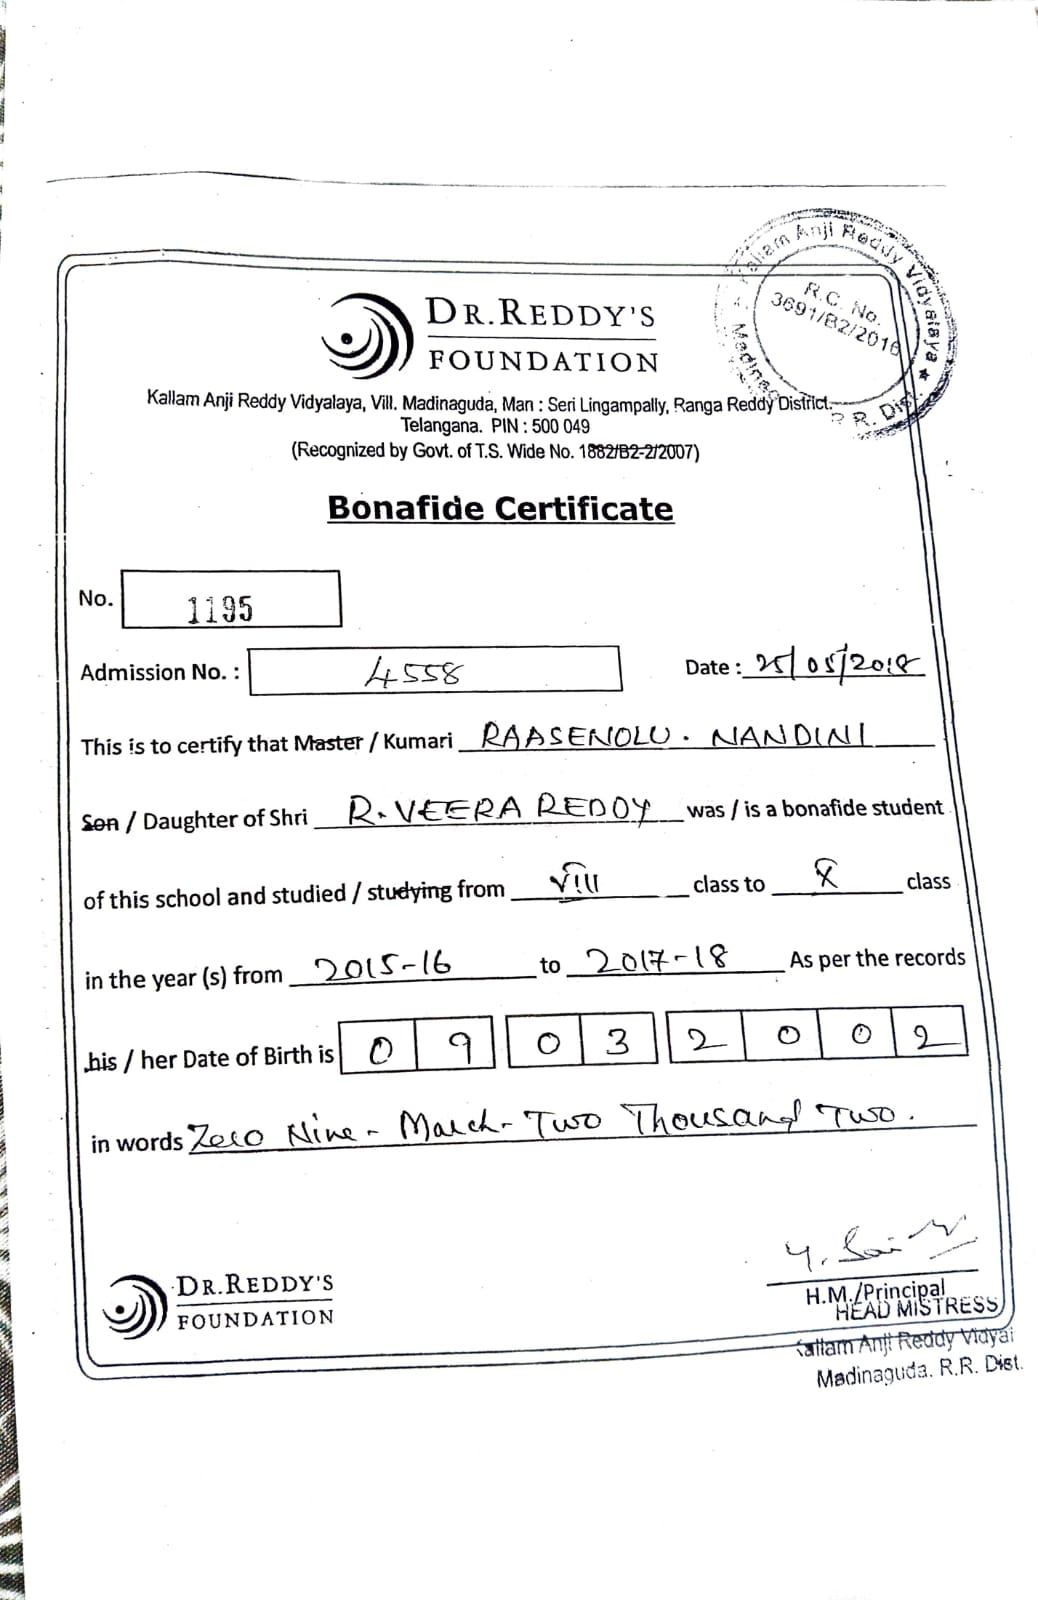 Kallam Anji Reddy Vidyalaya ★ Madinag R. R. Dist.
R.C. No.
3691/B2/2016
DR.REDDY'S
FOUNDATION
Kallam Anji Reddy Vidyalaya, Vill. Madinaguda, Man : Seri Lingampally, Ranga Reddy District.
Telangana. PIN : 500 049
(Recognized by Govt. of T.S. Wide No. 1882/B2-2/2007)
Bonafide Certificate
No. 1195
Admission No. : 4558 Date : 25/05/2018
This is to certify that Master / Kumari RAASENOLU. NANDINI
Son / Daughter of Shri R. VEERA REDDY was / is a bonafide student
of this school and studied / studying from VIII class to X class
in the year (s) from 2015-16 to 2017-18 As per the records
his / her Date of Birth is 0 9 0 3 2 0 0 2
in words Zero Nine - March - Two Thousand Two.
Y. Sai
DR.REDDY'S
FOUNDATION
H.M./Principal
HEAD MISTRESS
Kallam Anji Reddy Vidyal
Madinaguda. R.R. Dist.